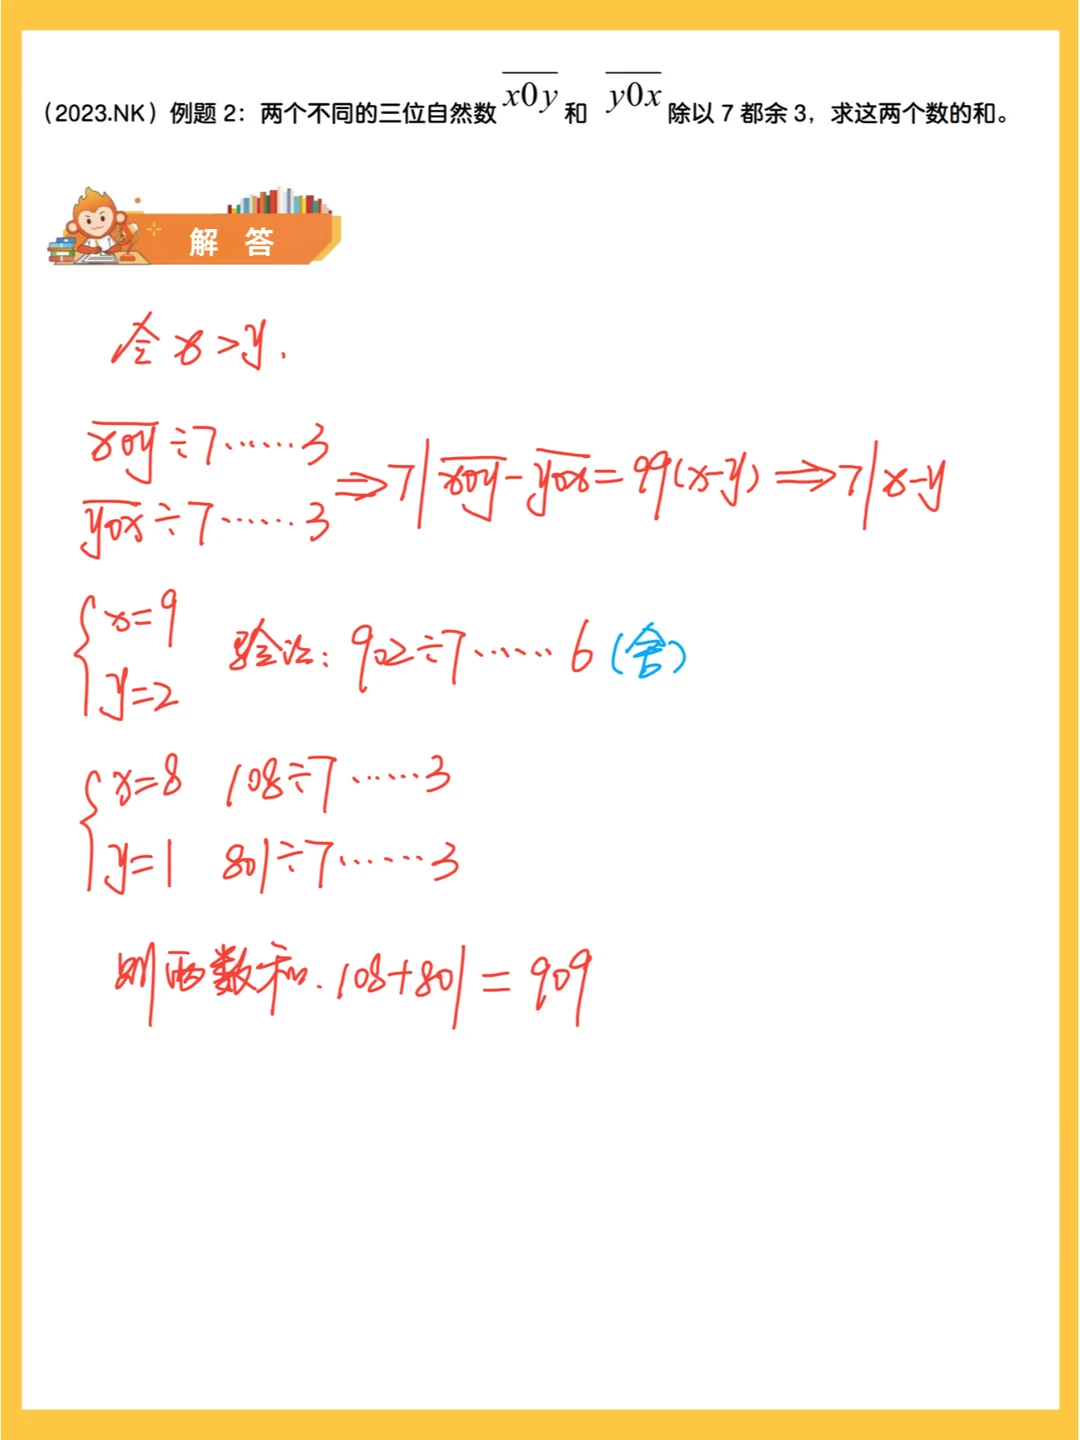 （2023.NK）例题 2：两个不同的三位自然数 x0y 和 y0x 除以 7 都余 3，求这两个数的和。
解 答
令 x>y.
x0y÷7……3
y0x÷7……3
⇒7|x0y-y0x=99(x-y)⇒7|x-y
{x=9
y=2
验证：902÷7……6（舍）
{x=8 108÷7……3
y=1 801÷7……3
则两数和.108+801=909